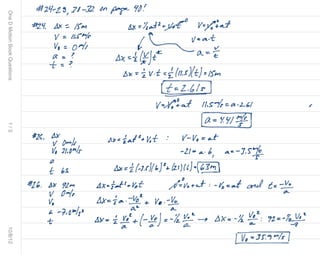 #24-28, 31-32 on page 48!
One D Motion Book Questions
1 / 5
10/8/12
#24. Δx = 15m
V = 11.5m/s
V₀ = 0 m/s
a = ?
t = ?
Δx = ½at² + V₀t
V = V₀ + at
V = at
a = V/t
Δx = ½(V/t)t²
Δx = ½ V·t = ½(11.5)(t) = 15m
t = 2.61s
V = V₀ + at 11.5m/s = a·2.61
a = 4.41 m/s²
#25. Δx
V 0m/s
V₀ 21.0m/s
a
t 6s
Δx = ½at² + V₀t : V - V₀ = at
-21 = a·6, a = -3.5 m/s²
Δx = ½(-3.5)(6)² + (21)(6) = 63m
#26. Δx 92m
V 0m/s
V₀
a -7.0m/s²
t
Δx = ½at² + V₀t
V = V₀ + at : -V₀ = at and t = -V₀/a
Δx = ½a · V₀²/a² + V₀ · -V₀/a
Δx = ½ V₀²/a + (-V₀²/a) = -½ V₀²/a → Δx = -½ V₀²/a : 92 = -½ V₀²/-7.0
V₀ = 35.9 m/s